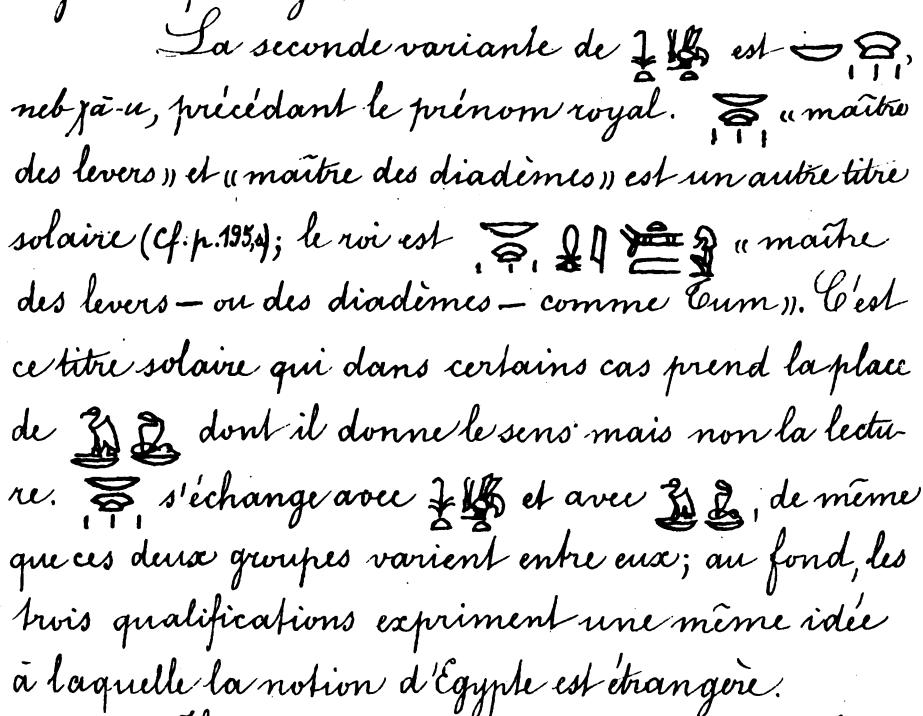 La seconde variante de 𓇓𓏏𓆤𓏏 est 𓎟 𓈍𓏥,
neb χā-u, précédant le prénom royal. 𓎟𓈍𓏥 « maître
des levers » et « maître des diadèmes » est un autre titre
solaire (Cf. p. 195,4); le roi est 𓎟𓈍𓏥 « maître
des levers — ou des diadèmes — comme Tum ». C'est
ce titre solaire qui dans certains cas prend la place
de 𓅒𓆗 dont il donne le sens mais non la lectu-
re. 𓎟𓈍𓏥 s'échange avec 𓇓𓏏𓆤𓏏 et avec 𓅒𓆗, de même
que ces deux groupes varient entre eux; au fond, les
trois qualifications expriment une même idée
à laquelle la notion d'Egypte est étrangère.